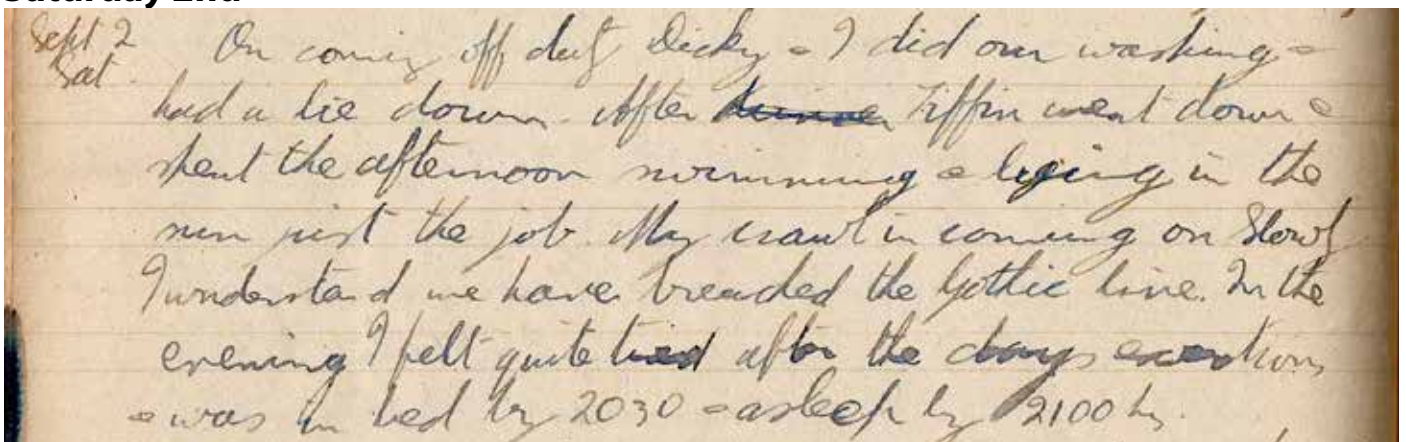 Saturday 2nd
Sept 2 On coming off duty Dicky & I did our washing &
Sat. had a lie down. After dinner Tiffin went down &
spent the afternoon swimming & lying in the
sun just the job. My crawl is coming on slowly
I understand we have breached the Gothic line. In the
evening I felt quite tired after the days exertions
& was in bed by 2030 & asleep by 2100 hrs.